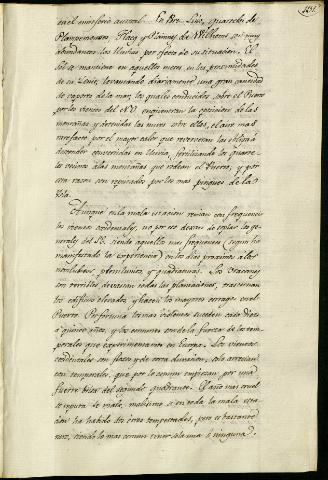 en el emisferio austral. En Pto. Luis, quarteles de
Plampemouses, Flacq y Plaines de Wilhems son muy
abundantes las lluvias por efecto de su situacion. El
sol se mantiene en aquellos meses en las proximidades
de su Zenit, levantando diariamente una gran cantidad
de vapores de la mar, los quales conducidos sobre el Puerto
por los vientos del NO. encuentran la oposicion de las
montañas y detenidas las nuves sobre ellas, el aire mas
rarefacto por el mayor calor que reververan las
descender convertidas en lluvia, fertilizando los quarte-
les vecinos a las montañas que rodean el Puerto, y por
esta razon son reputados por los mas pingues de la
Isla.
Aunque en la mala estacion reinan con frequencia
los vientos occidentales, no por eso dexan de soplar los ge-
nerales del SE. siendo aquellos mas frequentes (segun ha
manifestado la experiencia) en los dias proximos a los
novilunios, plenilunios y quadraturas. Los Uracanes
son terribles devastan todas las plantaciones, trastornan
los edificios elevados y hacen los mayores estragos en el
Puerto. Por fortuna tomas suceden cada diez
o quince años, y los comunes son de la fuerza de los tem-
porales que experimentamos en Europa. Los vientos
occidentales son flojos y de corta duracion, solo arrecian
con temporales, que por lo comun empiezan por una
fuerte brisa del segundo quadrante. El año mas cruel
se reputa de malo, maximo si en toda la mala esta-
cion ha habido dos o tres tempestades, pero es bastante
raro, siendo lo mas comun tener sola una o ninguna.